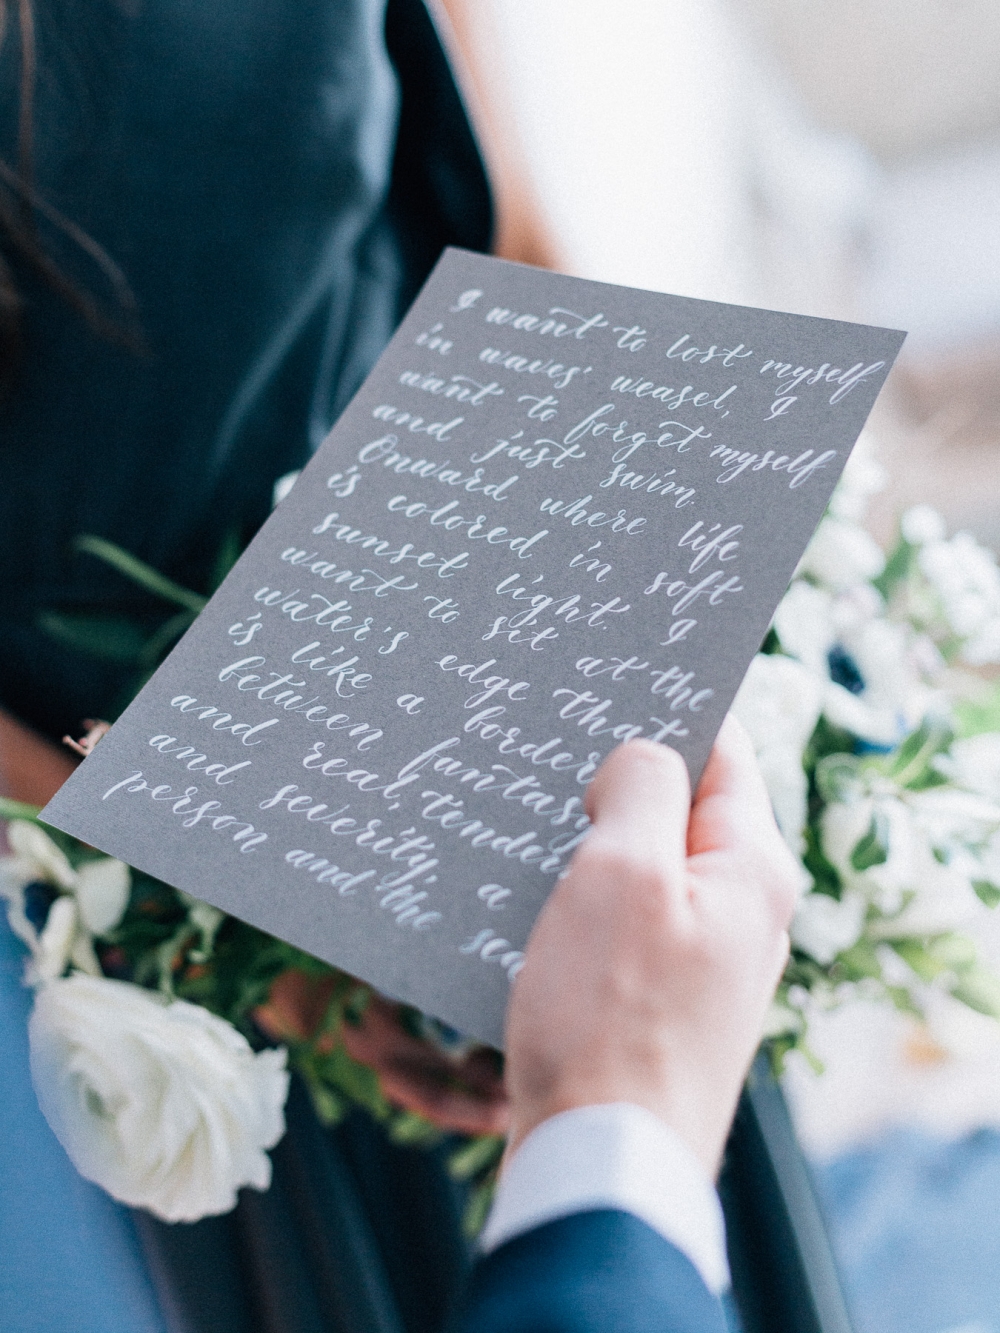 I want to lost myself
in waves' weasel, I
want to forget myself
and just swim.
Onward where life
is colored in soft
sunset light. I
want to sit at the
water's edge that
is like a border
between fantasy
and real, tender
and severity, a
person and the sea